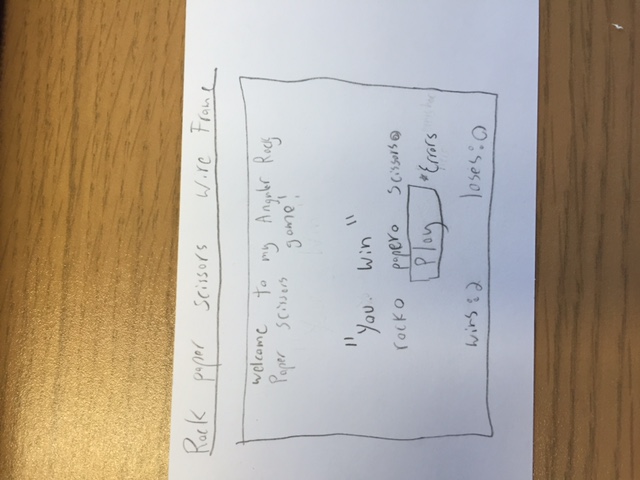 Rock paper scissors wire Frame
welcome to my Angular Rock
Paper scissors game!
"You win"
rock paper scissors
Play *Errors
wins:2 loses:0